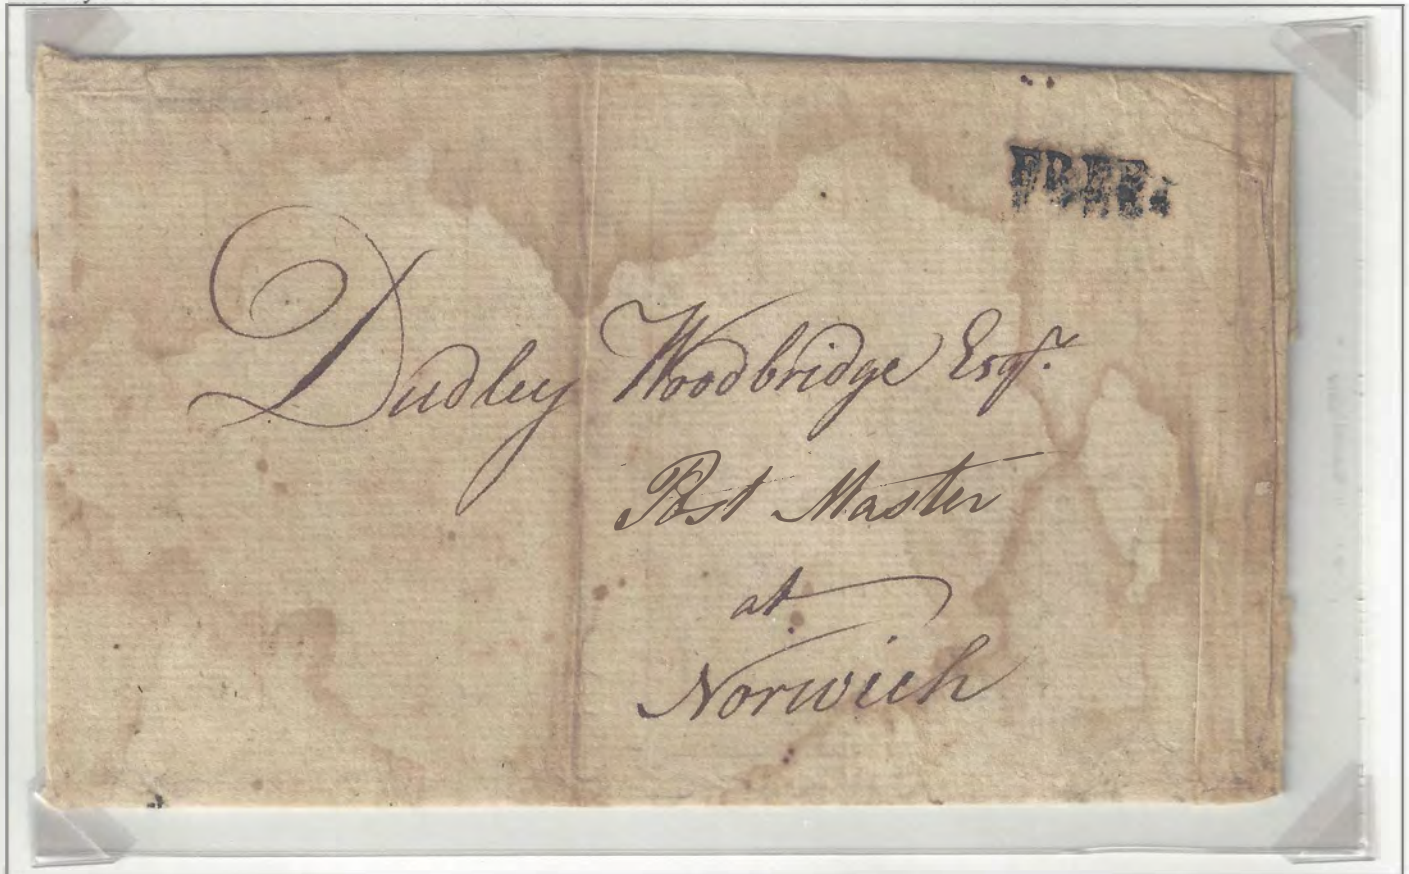 FREE
Dudley Woodbridge Esqr.
Post Master
at
Norwich